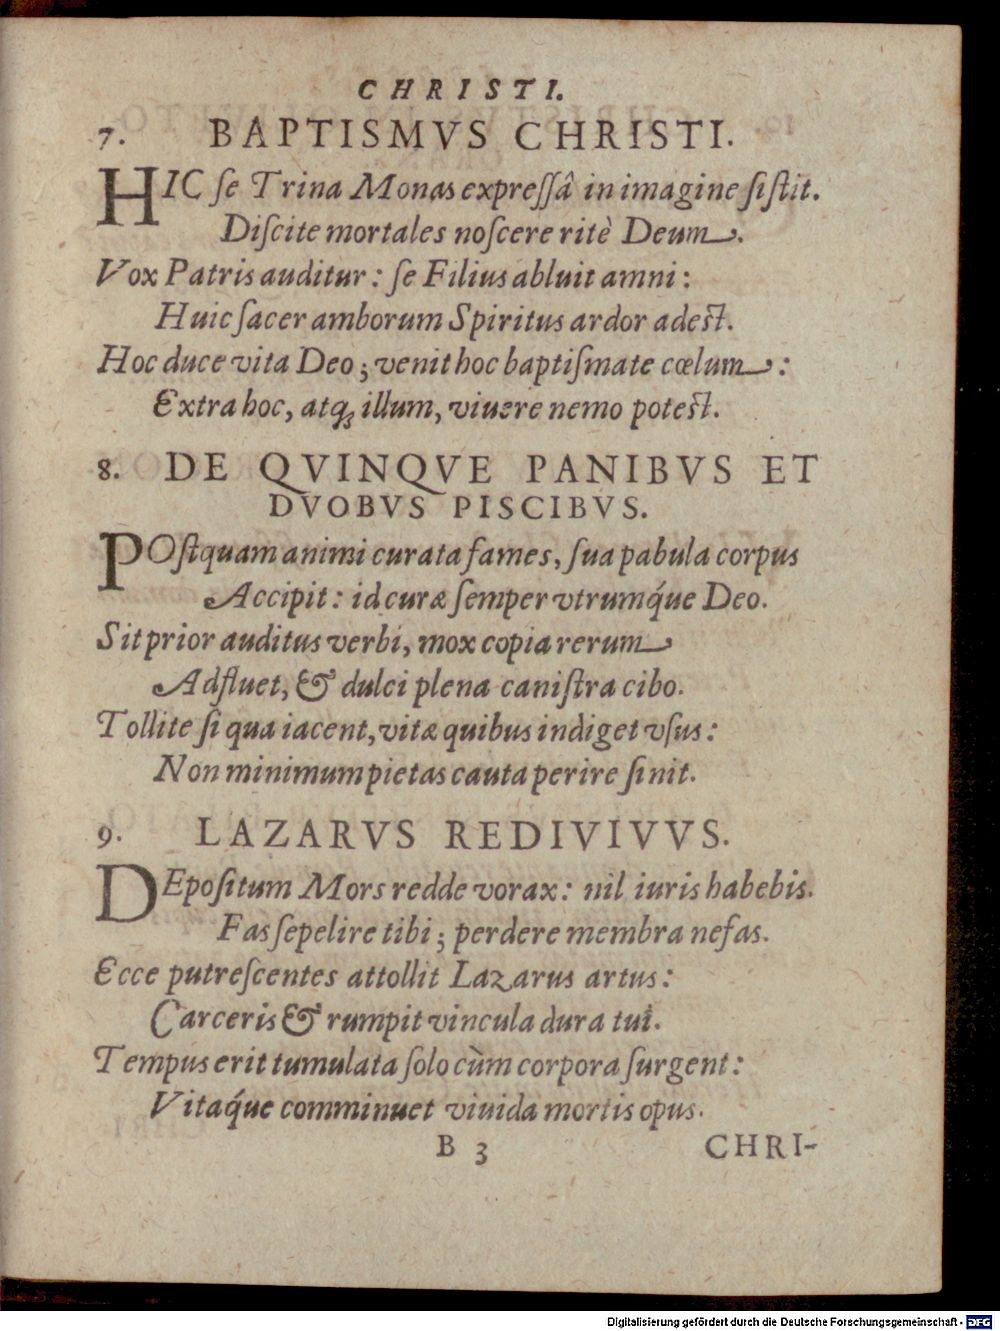 CHRISTI.
7. BAPTISMVS CHRISTI.
HIC ſe Trina Monas expreſſâ in imagine ſiſtit.
Diſcite mortales noſcere ritè Deum.
Vox Patris auditur: ſe Filius abluit amni:
Huic ſacer amborum Spiritus ardor adeſt.
Hoc duce vita Deo; venit hoc baptiſmate cœlum:
Extra hoc, atq; illum, viuere nemo poteſt.
8. DE QVINQVE PANIBVS ET
DVOBVS PISCIBVS.
POſtquam animi curata fames, ſua pabula corpus
Accipit: id curæ ſemper vtrumq́ue Deo.
Sit prior auditus verbi, mox copia rerum
Adfluet, & dulci plena caniſtra cibo.
Tollite ſi qua iacent, vitæ quibus indiget vſus:
Non minimum pietas cauta perire ſinit.
9. LAZARVS REDIVIVVS.
DEpoſitum Mors redde vorax: nil iuris habebis.
Fas ſepelire tibi; perdere membra nefas.
Ecce putreſcentes attollit Lazarus artus:
Carceris & rumpit vincula dura tui.
Tempus erit tumulata ſolo cùm corpora ſurgent:
Vitaq́ue comminuet viuida mortis opus.
B 3 CHRI-
Digitalisierung gefördert durch die Deutsche Forschungsgemeinschaft - DFG